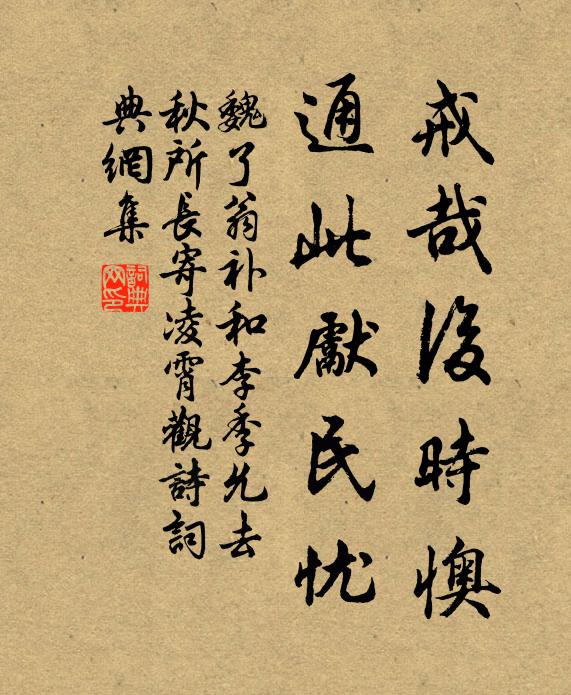 戒哉後時懊
通此獻民忧
魏了翁补和李季允去
秋所長寄凌霄觀詩詞
典網集
詞典
网印